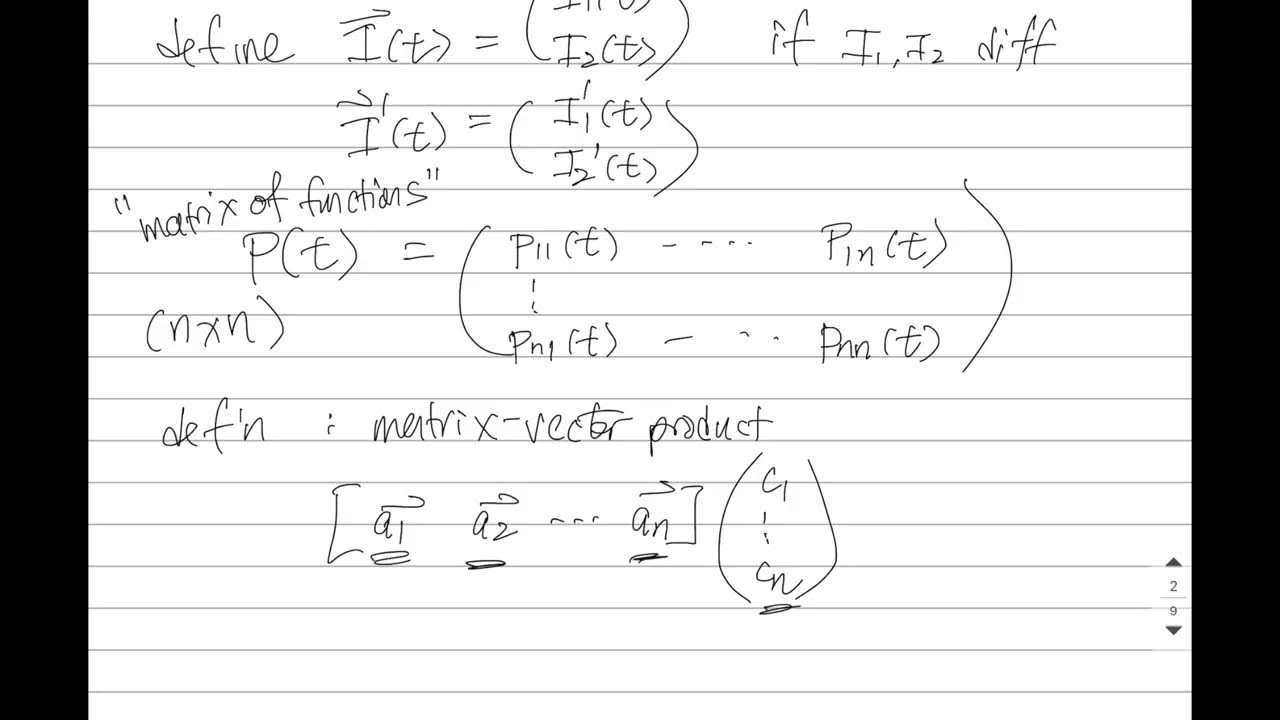 I₁(t)
define I⃗(t) = ( I₂(t) ) if I₁, I₂ diff
I⃗'(t) = ( I₁'(t)
I₂'(t) )
"matrix of functions"
P(t) = ( p₁₁(t) - ···· p₁ₙ(t)
⋮
(n×n) pₙ₁(t) - ··· pₙₙ(t) )
def'n : matrix-vector product
[ a⃗₁ a⃗₂ ··· a⃗ₙ ] ( c₁
⋮
cₙ )
2
9